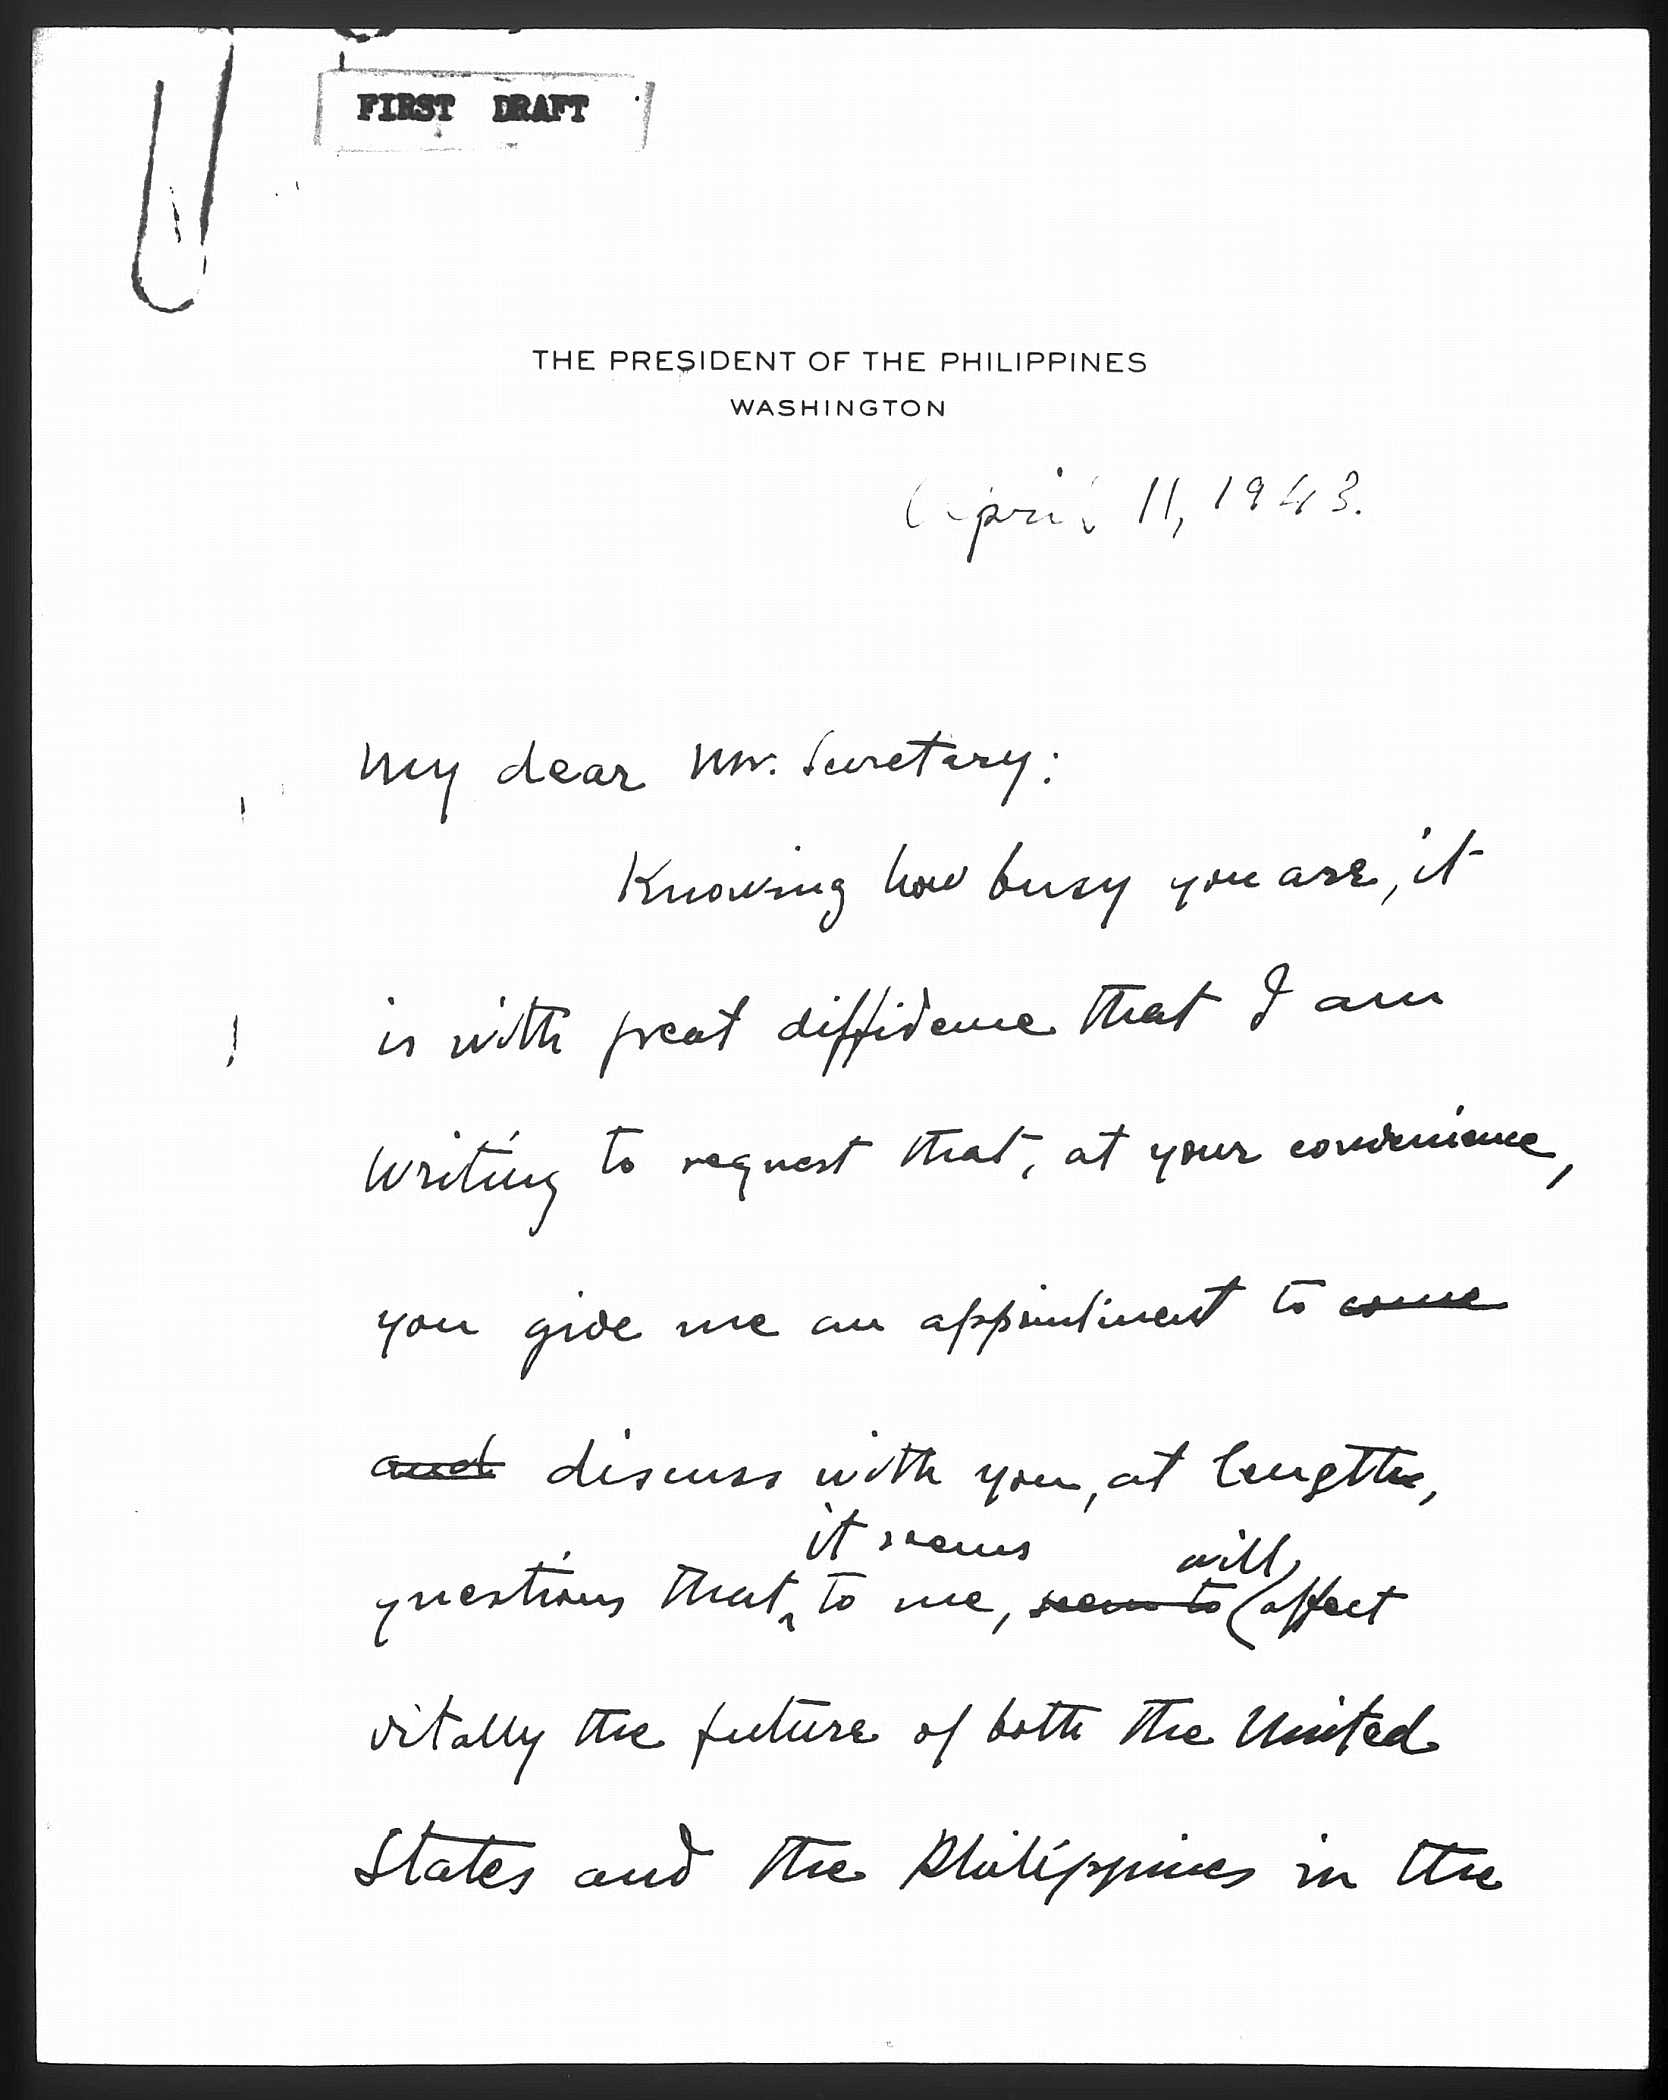 FIRST DRAFT
THE PRESIDENT OF THE PHILIPPINES
WASHINGTON
April 11, 1943.
My dear Mr. Secretary:
Knowing how busy you are, it
is with great diffidence that I am
writing to request that, at your convenience,
you give me an appointment to come
and discuss with you, at length,
it seems will
questions that, to me, seem to affect
vitally the future of both the United
States and the Philippines in the